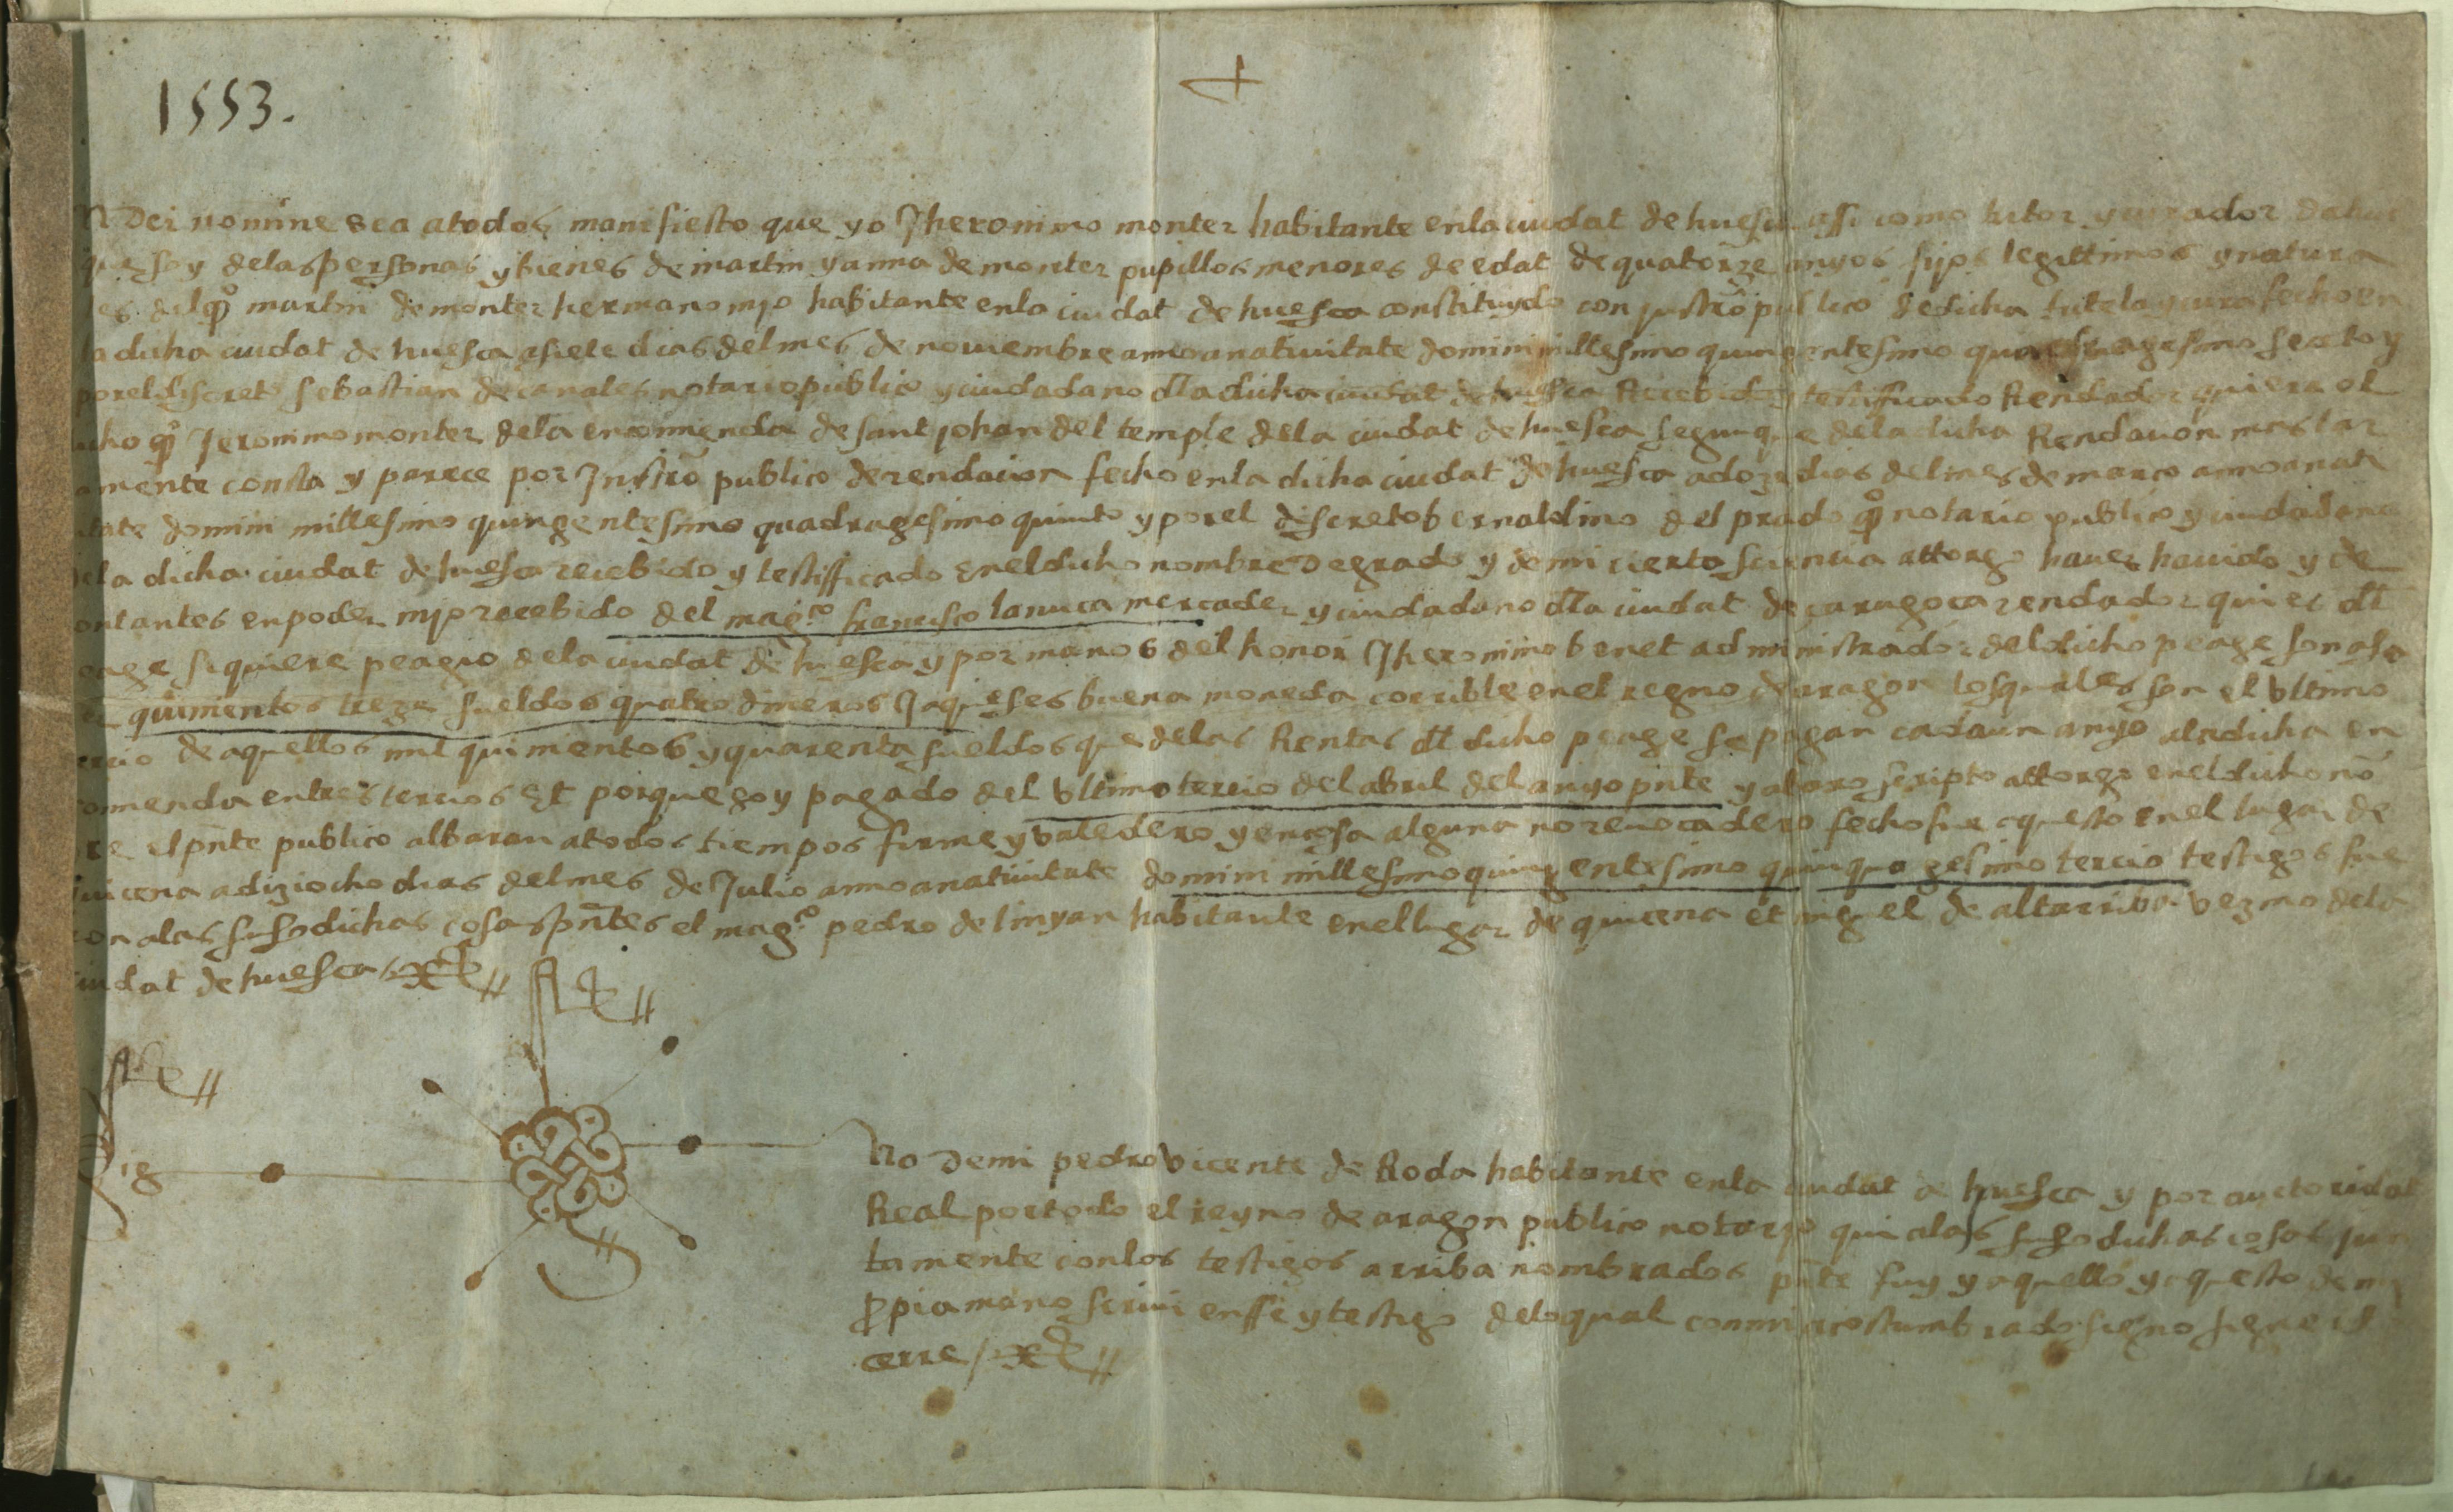 1553.
N Dei nomine sea atodos manifiesto que yo Jheronimo monter habitante enla ciudat de huesca assi como tutor y curador dativo
que soy delas personas y bienes de martin y anna de monter pupillos menores de edat de quatorze anyos fijos legittimos y natura
les del qº martin de monter hermano mjo habitante enla ciudat de huesca constituydo con jnstrõ publico de dicha tutela y cura fecho en
la dicha ciudat de huesca a siete dias del mes de nouiembre anno anatiuitate domini millesimo quingentesimo quadragesimo sexto y
por el discreto sebastian de canales notario publico y ciudadano dla dicha ciudat de huesca Recebido y testifficado Rendador quiera el
icho qº Jeronimo monter dela encomienda de sant johan del temple dela ciudat de huesca segun que dela dicha Rendacion mas lar
amente consta y parece por Jnstrõ publico de rendacion fecho enla dicha ciudat de huesca a doze dias del mes de março anno anati
itate domini millesimo quingentesimo quadragesimo quinto y por el discreto bernaldino del prado qº notario publico y ciudadano
dela dicha ciudat de huesca recebido y testifficado Enel dicho nombre De grado y de mi cierta sciencia attorgo hauer hauido y de
ontantes en poder mjo recebido del magco francisco lanuca mercader y ciudadano dla ciudat de caragoca rendador qui es dl
eage siquiere peagio dela ciudat de huesca y por manos del honor Jheronimo benet administrador del dicho peage son asa
er quinientos treze sueldos quatro dineros Jaqueses buena moneda corrible en el regno de aragon los quales son el vltimo
ercio de aquellos mil quinientos y quarenta sueldos que delas Rentas dl dicho peage se pagan cadaun anyo ala dicha en
comienda en tres tercios Et porque soy pagado del vltimo tercio del abril del anyo pnte y abaxo scripto attorgo enel dicho nõ
re el pnte publico albaran atodos tiempos firme y valedero y en cosa alguna no reuocadero fecho fue aquesto en el lugar de
quicena a diziocho dias del mes de Julio anno anatiuitate domini millesimo quingentesimo quinquagesimo tercio testigos fue
ron alas susodichas cosas pntes el magco pedro de linyan habitante enel lugar de quicena et miguel de altarriba vezino dela
ciudat de huesca
Sig
No De mi pedro vicente de Roda habitante enla ciudat de huesca y por auctoridat
Real por todo el reyno de aragon publico notario qui alas susodichas cosas jun
tamente con los testigos arriba nombrados pnte fuy y aquello y aquesto de mi
propia mano scriui en ffe y testigo delo qual con mi acostumbrado signo signe et
cerre